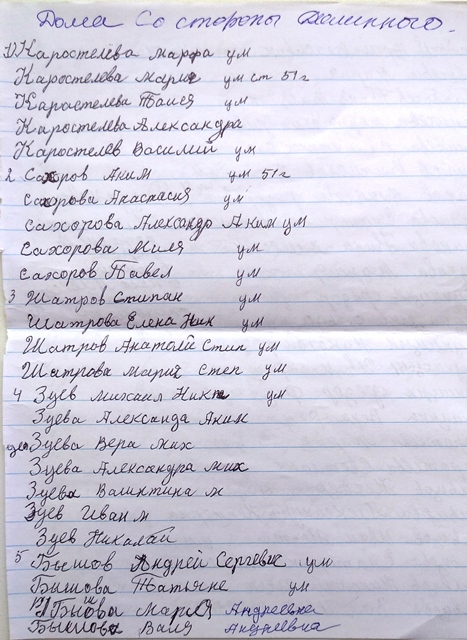 Дома со стороны Калинного.
1) Каростелёва Марфа ум
Каростелева Мария ум ст 51г
Каростелева Таисея ум
Каростелева Александра
Каростелев Василий ум
2 Сахоров Аким ум 51г
Сахорова Анастасия ум
Сахорова Александр Аким ум
Сахорова Миля ум
Сахоров Павел ум
3 Шатров Стипан ум
Шатрова Елена Ник ум
Шатров Анатолй Стип ум
Шатрова Мария Степ ум
4 Зуев Михаил Ник ум
Зуева Александа Аким
Зуева Вера Мих
Зуева Александра Мих
Зуева Валинтина м
Зуев Иван м
Зуев Николай
5 Бышов Андрей Сергевич ум
Бышова Татьяне ум
Мария Андреевна
Бышова Валя Андреевна